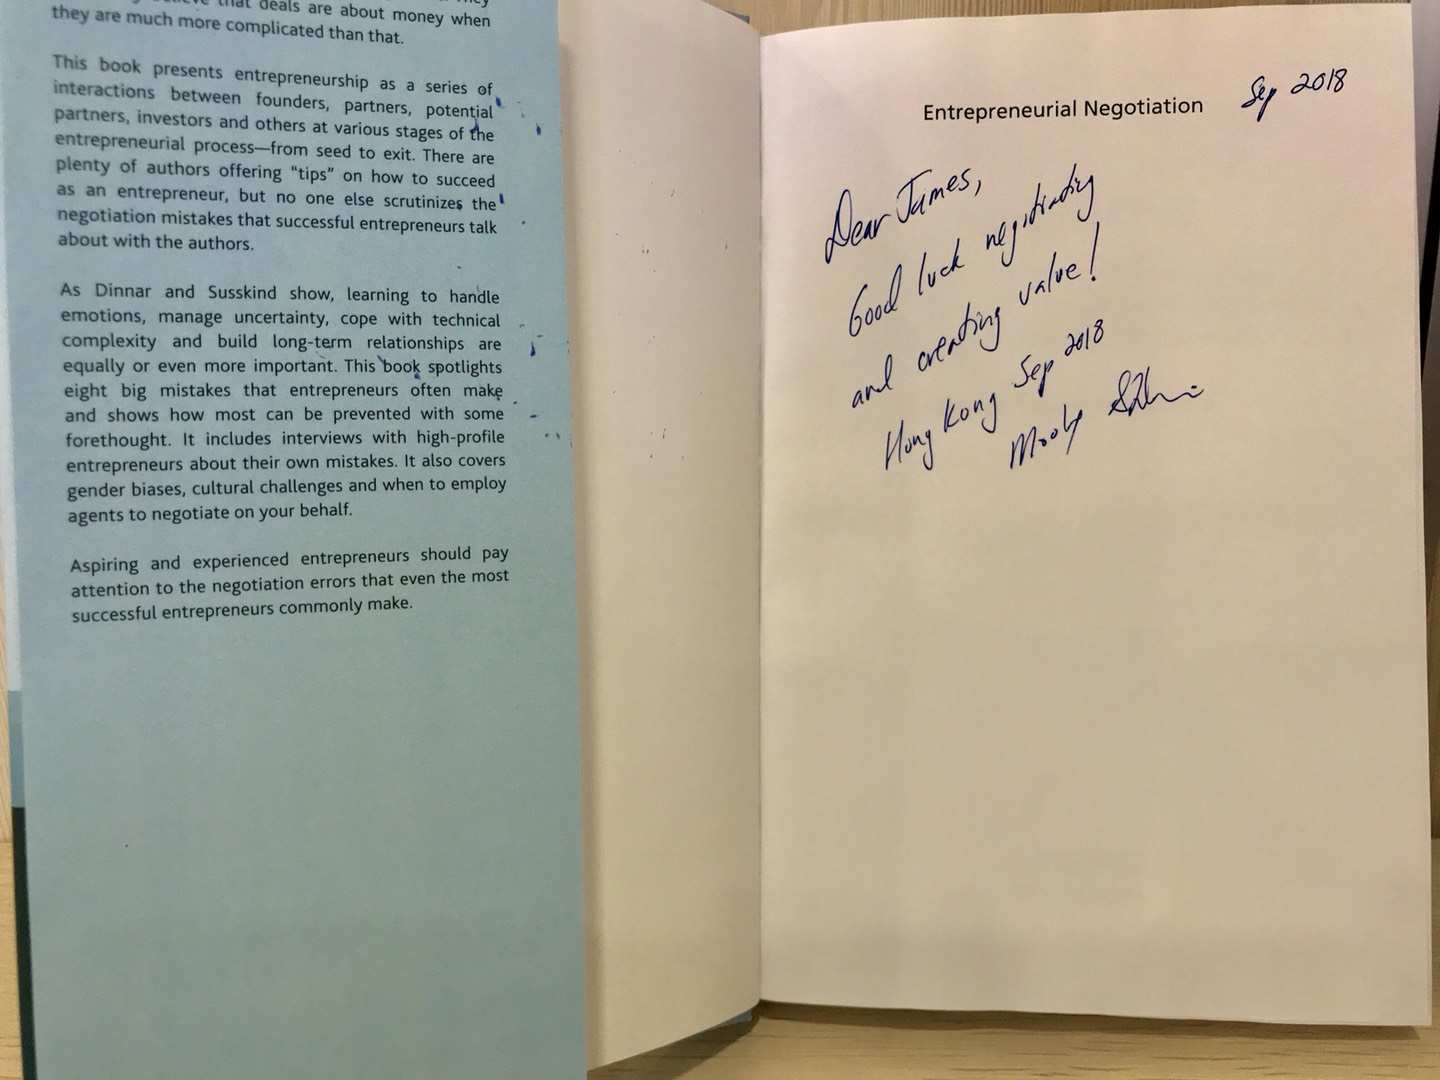 that deals are about money when
they are much more complicated than that.
This book presents entrepreneurship as a series of
interactions between founders, partners, potential
partners, investors and others at various stages of the
entrepreneurial process—from seed to exit. There are
plenty of authors offering “tips” on how to succeed
as an entrepreneur, but no one else scrutinizes the
negotiation mistakes that successful entrepreneurs talk
about with the authors.
As Dinnar and Susskind show, learning to handle
emotions, manage uncertainty, cope with technical
complexity and build long-term relationships are
equally or even more important. This book spotlights
eight big mistakes that entrepreneurs often make
and shows how most can be prevented with some
forethought. It includes interviews with high-profile
entrepreneurs about their own mistakes. It also covers
gender biases, cultural challenges and when to employ
agents to negotiate on your behalf.
Aspiring and experienced entrepreneurs should pay
attention to the negotiation errors that even the most
successful entrepreneurs commonly make.
Entrepreneurial Negotiation
Sep 2018
Dear James,
Good luck negotiating
and creating value!
Hong Kong Sep 2018